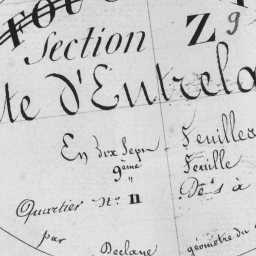 Section Z 9
te d'Entrela
En dix Sept Feuilles
9ème Feuille
De s à
Quartier N° 11
par Declaye géomètre du